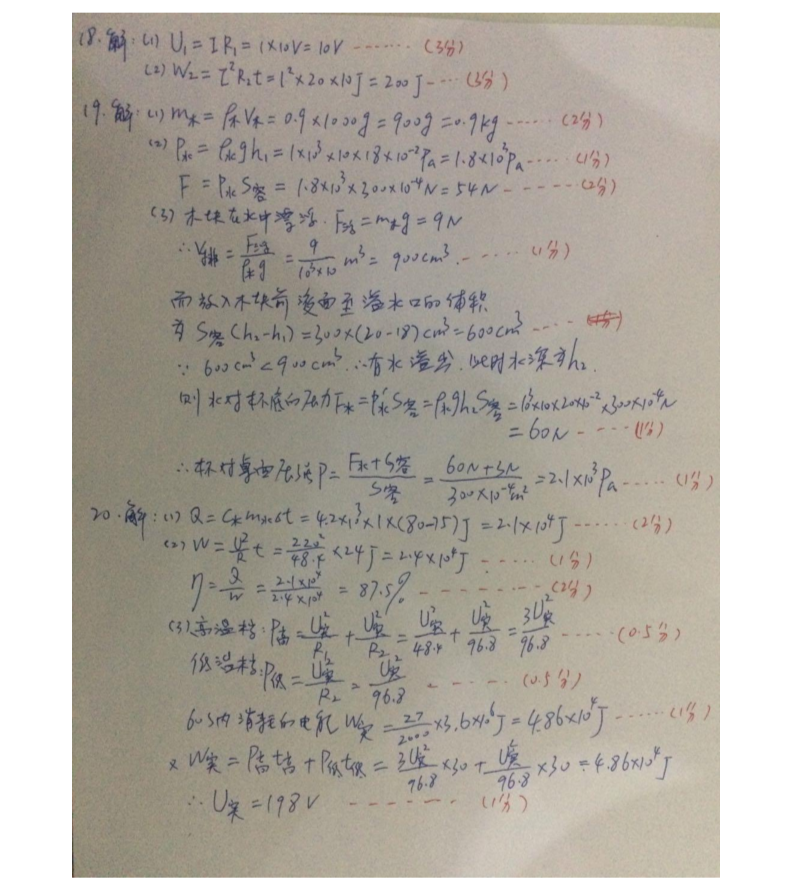 18.解:(1) U₁=IR₁=1×10V=10V ------- (3分)
(2) W₂=I²R₂t=1²×20×10J=200J ---- (3分)
19.解:(1) m木=ρ木V木=0.9×1000g=900g=0.9kg ------ (2分)
(2) P水=ρ水gh₁=1×10³×10×18×10⁻²Pa=1.8×10³Pa ----- (1分)
F=P水S容=1.8×10³×300×10⁻⁴N=54N ------- (2分)
(3) 木块在水中漂浮. F浮=m木g=9N
∴V排=F浮/ρ水g=9/10³×10 m³=900cm³. ------ (1分)
而放入木块前液面至溢水口的体积
为 S容(h₂-h₁)=300×(20-18)cm³=600cm³ ----
∵ 600cm³<900cm³ ∴有水溢出. 此时水深为h₂.
则水对杯底的压力F水=P水'S容=ρ水gh₂S容=10³×10×20×10⁻²×300×10⁻⁴N
=60N ---- (1分)
∴杯对桌面压强P=F水+G容/S容=60N+3N/300×10⁻⁴m²=2.1×10³Pa ----- (1分)
20.解:(1) Q=C水m水Δt=4.2×10³×1×(80-75)J=2.1×10⁴J ------ (2分)
(2) W=U²/R t=220²/48.4×24J=2.4×10⁴J ------ (1分)
η=Q/W=2.1×10⁴/2.4×10⁴=87.5% ---------- (2分)
(3)高温档:P高=U实²/R₁+U实²/R₂=U实²/48.4+U实²/96.8=3U实²/96.8 ----- (0.5分)
低温档:P低=U实²/R₂=U实²/96.8 ------ (0.5分)
60S内消耗的电能 W实=27/2000×3.6×10⁶J=4.86×10⁴J ------ (1分)
又 W实=P高t高+P低t低=3U实²/96.8×30+U实²/96.8×30=4.86×10⁴J
∴ U实=198V -------- (1分)